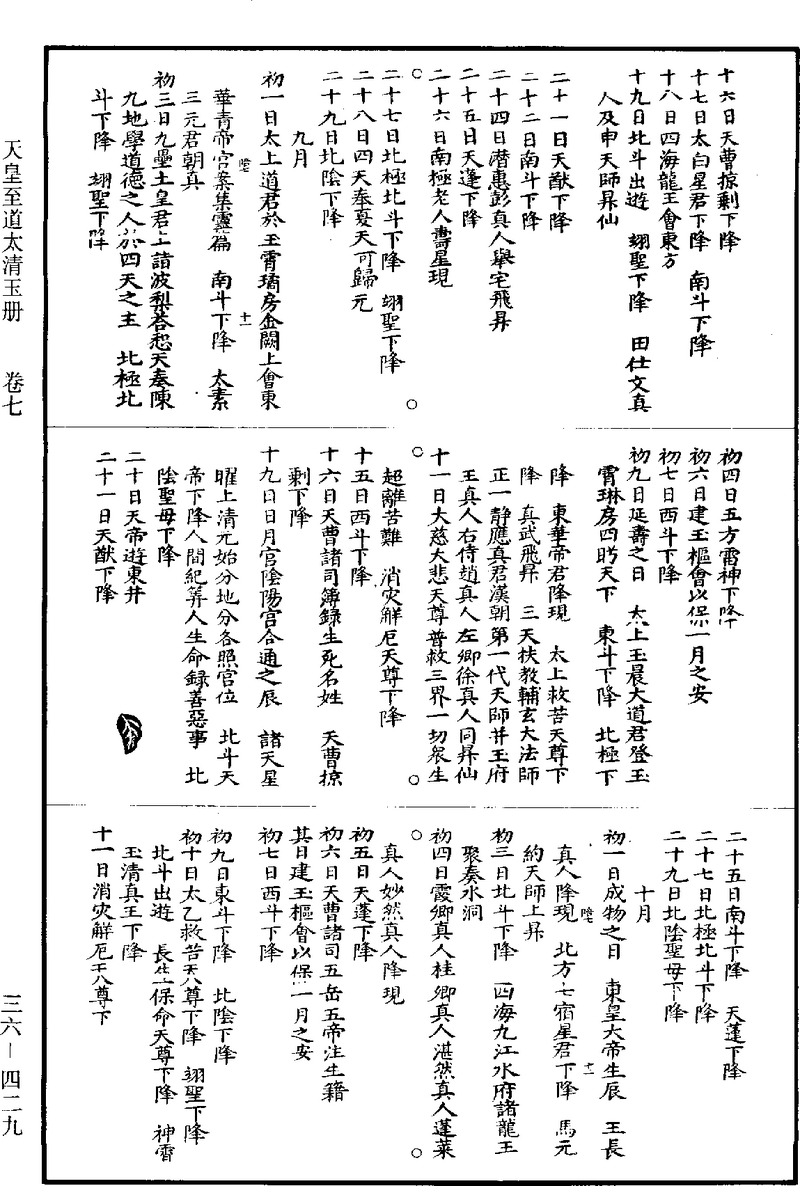 十六日天曹掠剩下降
十七日太白星君下降　南斗下降
十八日四海龍王會東方
十九日北斗出遊　翊聖下降　田仕文真
人及申天師昇仙
二十一日天猷下降
二十二日南斗下降
二十四日潛惠彭真人舉宅飛昇
二十五日天蓬下降
二十六日南極老人壽星現
二十七日北極北斗下降　翊聖下降
二十八日四天奏夏天可歸元
二十九日北陰下降
九月
初一日太上道君於玉霄瓊房金闕上會東
華青帝宮案集靈篇　南斗下降　太素
三元君朝真
初三日九壘土皇君上詣波梨荅惒天奏陳
九地學道德之人於四天之主　北極北
斗下降　翊聖下降
初四日五方雷神下降
初六日建玉樞會以保一月之安
初七日西斗下降
初九日延壽之日　太上玉晨大道君登玉
霄琳房四眄天下　東斗下降　北極下
降　東華帝君降現　太上救苦天尊下
降　真武飛昇　三天扶教輔玄大法師
正一靜應真君漢朝第一代天師并玉府
王真人右侍趙真人左卿徐真人同昇仙
十一日大慈大悲天尊普救三界一切衆生
超離苦難　消灾解厄天尊下降
十五日西斗下降
十六日天曹諸司簿錄生死名姓　天曹掠
剩下降
十九日日月宮陰陽宮合通之辰　諸天星
曜上清元始分地分各照宮位　北斗天
帝下降人間紀筭人生命録善惡事　北
陰聖母下降
二十日天帝遊東井
二十一日天猷下降
二十五日南斗下降　天蓬下降
二十七日北極北斗下降
二十九日北陰聖母下降
十月
初一日成物之日　東皇大帝生辰　王長
真人降現　北方七宿星君下降　馬元
約天師上昇
初三日北斗下降　四海九江水府諸龍王
聚奏水洞
初四日霞卿真人桂卿真人湛然真人蓬萊
真人妙然真人降現
初五日天蓬下降
初六日天曹諸司五岳五帝注生籍
其日建玉樞會以保一月之安
初七日西斗下降
初九日東斗下降　北陰下降
初十日太乙救苦天尊下降　翊聖下降
北斗出遊　長生保命天尊下降　神霄
玉清真王下降
十一日消灾解厄天尊下
天皇至道太清玉册　卷七
三六—四二九